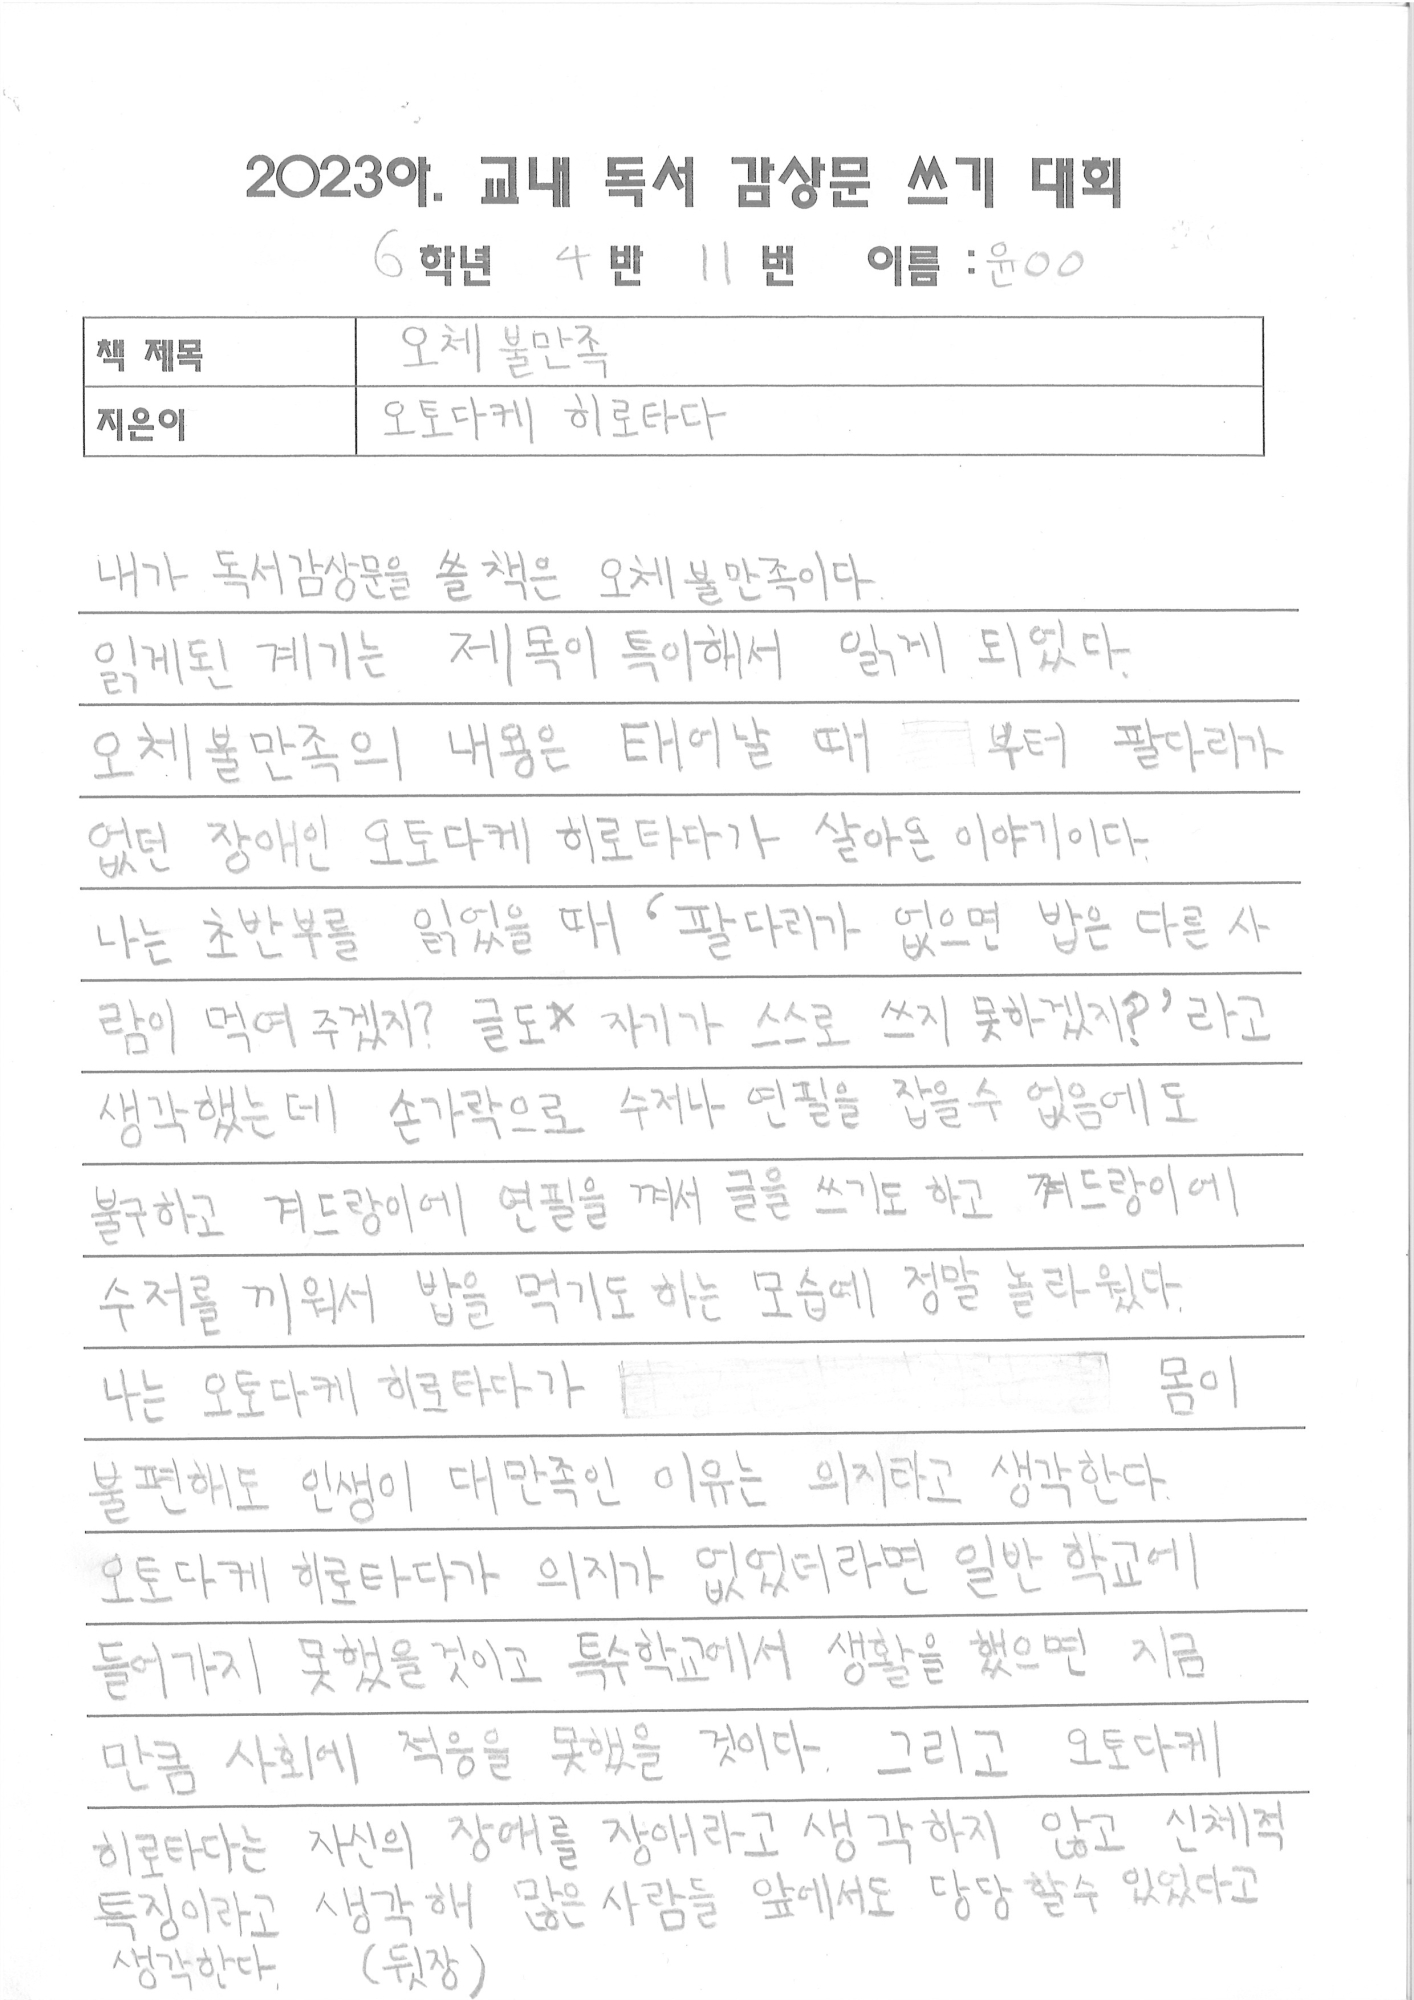 2023아. 교내 독서 감상문 쓰기 대회
6 학년 4 반 11 번 이름 : 윤00
책 제목 오체 불만족
지은이 오토다케 히로타다
내가 독서감상문을 쓸 책은 오체불만족이다.
읽게된 계기는 제목이 특이해서 읽게 되었다.
오체불만족의 내용은 태어날 때 부터 팔다리가
없던 장애인 오토다케 히로타다가 살아온 이야기이다.
나는 초반부를 읽었을 때 ‘팔다리가 없으면 밥은 다른 사
람이 먹여주겠지? 글도 자기가 스스로 쓰지 못하겠지?’라고
생각했는데 손가락으로 수저나 연필을 잡을수 없음에도
불구하고 겨드랑이에 연필을 껴서 글을 쓰기도 하고 겨드랑이에
수저를 끼워서 밥을 먹기도하는 모습에 정말 놀라웠다.
나는 오토다케 히로타다가 몸이
불편해도 인생이 대만족인 이유는 의지라고 생각한다.
오토다케 히로타다가 의지가 없었더라면 일반 학교에
들어가지 못했을것이고 특수학교에서 생활을 했으면 지금
만큼 사회에 적응을 못했을 것이다. 그리고 오토다케
히로타다는 자신의 장애를 장애라고 생각하지 않고 신체적
특징이라고 생각해 많은사람들 앞에서도 당당할수 있었다고
생각한다. (뒷장)